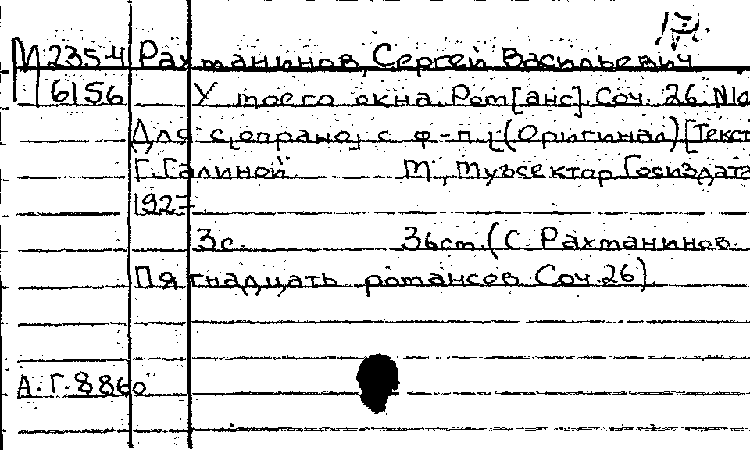 17.
М 235-4 Рахманинов, Сергей Васильевич
6156 У моего окна. Ром[анс]. Соч. 26. №10
Для с[опрано] с ф-п. (Оригинал) [Текст
Г. Галиной М., Музсектор Госиздата
1927
3с. 36см. (С. Рахманинов.
Пятнадцать романсов. Соч. 26).
А.Г. 8860